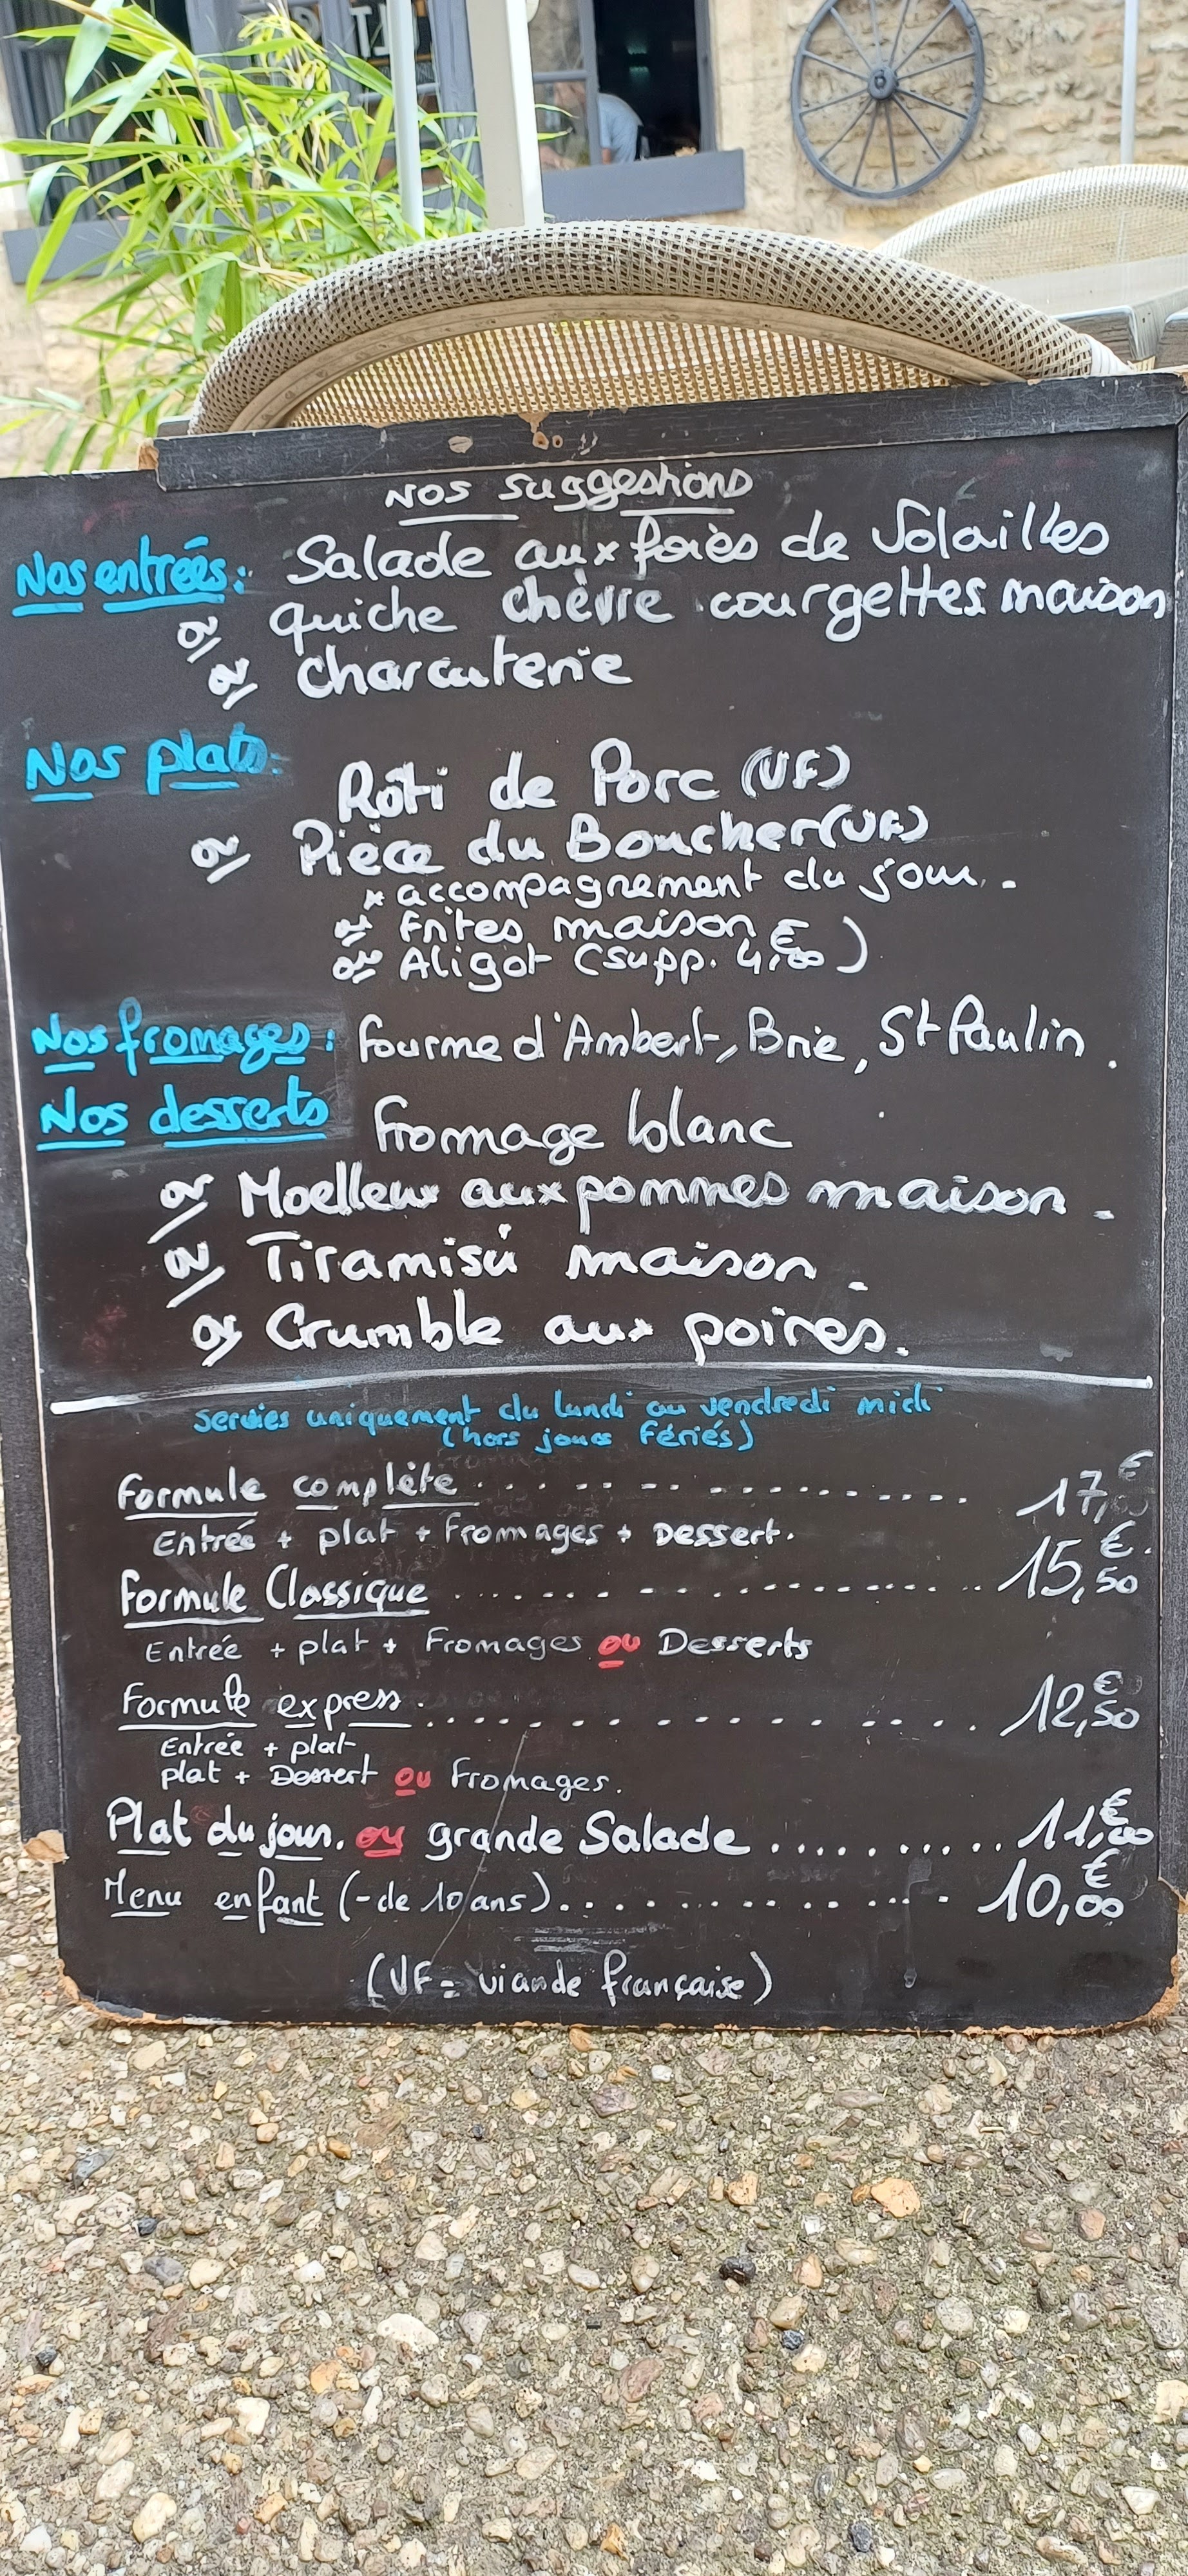 Nos suggestions
Nos entrées: Salade aux foies de Volailles
ou quiche chèvre courgettes maison
ou charcuterie
Nos plats:
Rôti de Porc (VF)
ou Pièce du Boucher (VF)
* accompagnement du jour.
ou Frites maison
ou Aligot (supp. 4,00€)
Nos fromages: fourme d'Ambert, Brie, St Paulin.
Nos desserts fromage blanc
ou Moelleux aux pommes maison.
ou Tiramisu maison.
ou Crumble aux poires.
servies uniquement du lundi au vendredi midi
(hors jours fériés)
Formule complète ............ 17,00€
Entrée + plat + Fromages + Dessert.
Formule Classique ............ 15,50€
Entrée + plat + Fromages ou Desserts
Formule express ............ 12,50€
Entrée + plat
plat + Dessert ou Fromages.
Plat du jour. ou grande Salade .......... 11,00€
Menu enfant (- de 10 ans) .......... 10,00€
(VF = viande française)